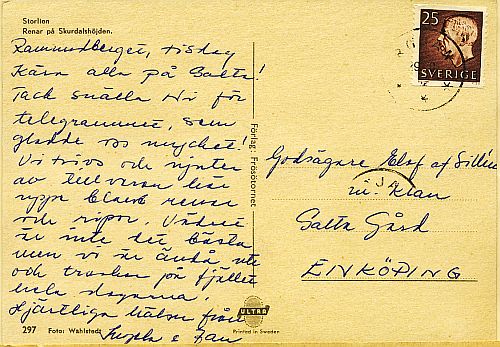 Storlien
Renar på Skurdalshöjden.
Ramundberget, tisdag
Kära alla på Salta!
Tack snälla Ni för
telegrammet, som
gladde oss mycket!
Vi trivs och njuter
av tillvaron här
uppe bland renar
och ripor. Vädret
är inte det bästa
men vi är ändå ute
och traskar på fjället
hela dagarna.
Hjärtliga hälsn från
o Jan
297 Foto: Wahlstedt
Förlag: Frösötornet
ULTRA
Printed in Sweden
25
SVERIGE
Godsägare Elof af
m. Klan
Salta Gård
ENKÖPING